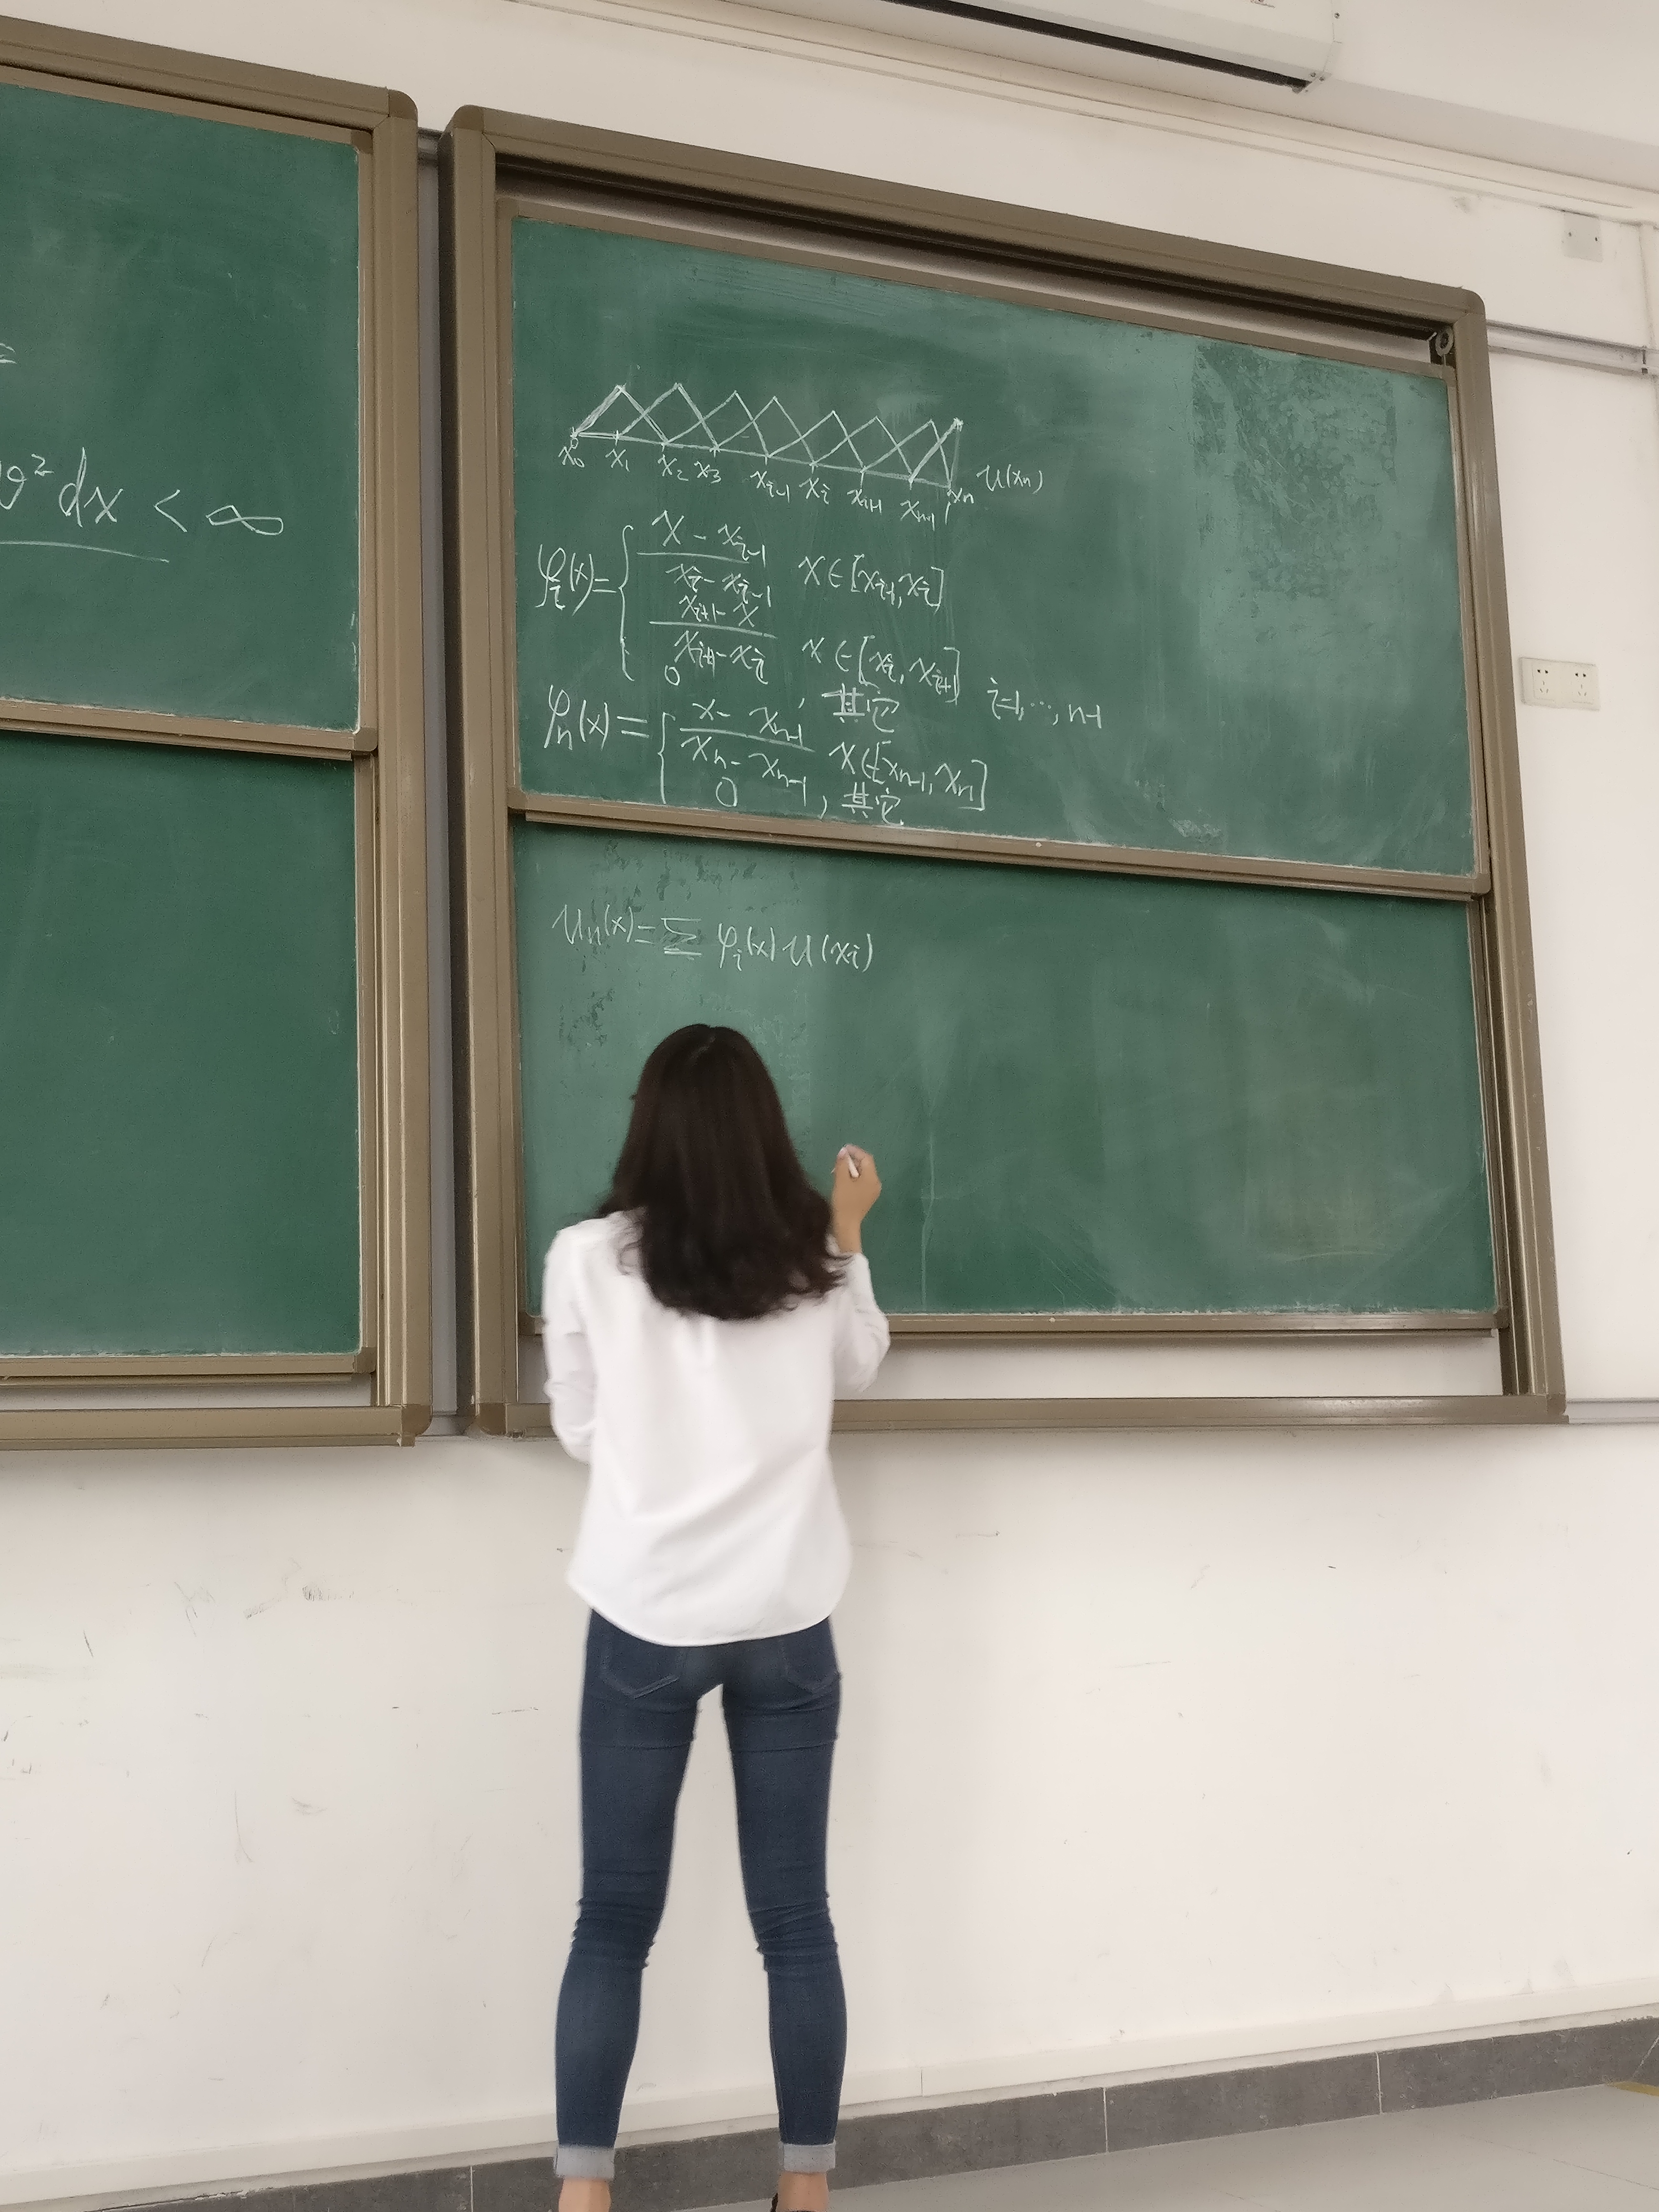 υ² dx < ∞
x₀ x₁ x₂ x₃ xᵢ₋₁ xᵢ xₙ₊₁ xₙ₋₁ xₙ u(xₙ)
φᵢ(x) = { (x - xᵢ₋₁)/(xᵢ - xᵢ₋₁) x ∈ [xᵢ₋₁, xᵢ]
(xᵢ₊₁ - x)/(xᵢ₊₁ - xᵢ) x ∈ [xᵢ, xᵢ₊₁]
0 , 其它 i=1, ⋯, n-1
φₙ(x) = { (x - xₙ₋₁)/(xₙ - xₙ₋₁) x ∈ [xₙ₋₁, xₙ]
0 , 其它
uₙ(x) = Σ φᵢ(x) u(xᵢ)